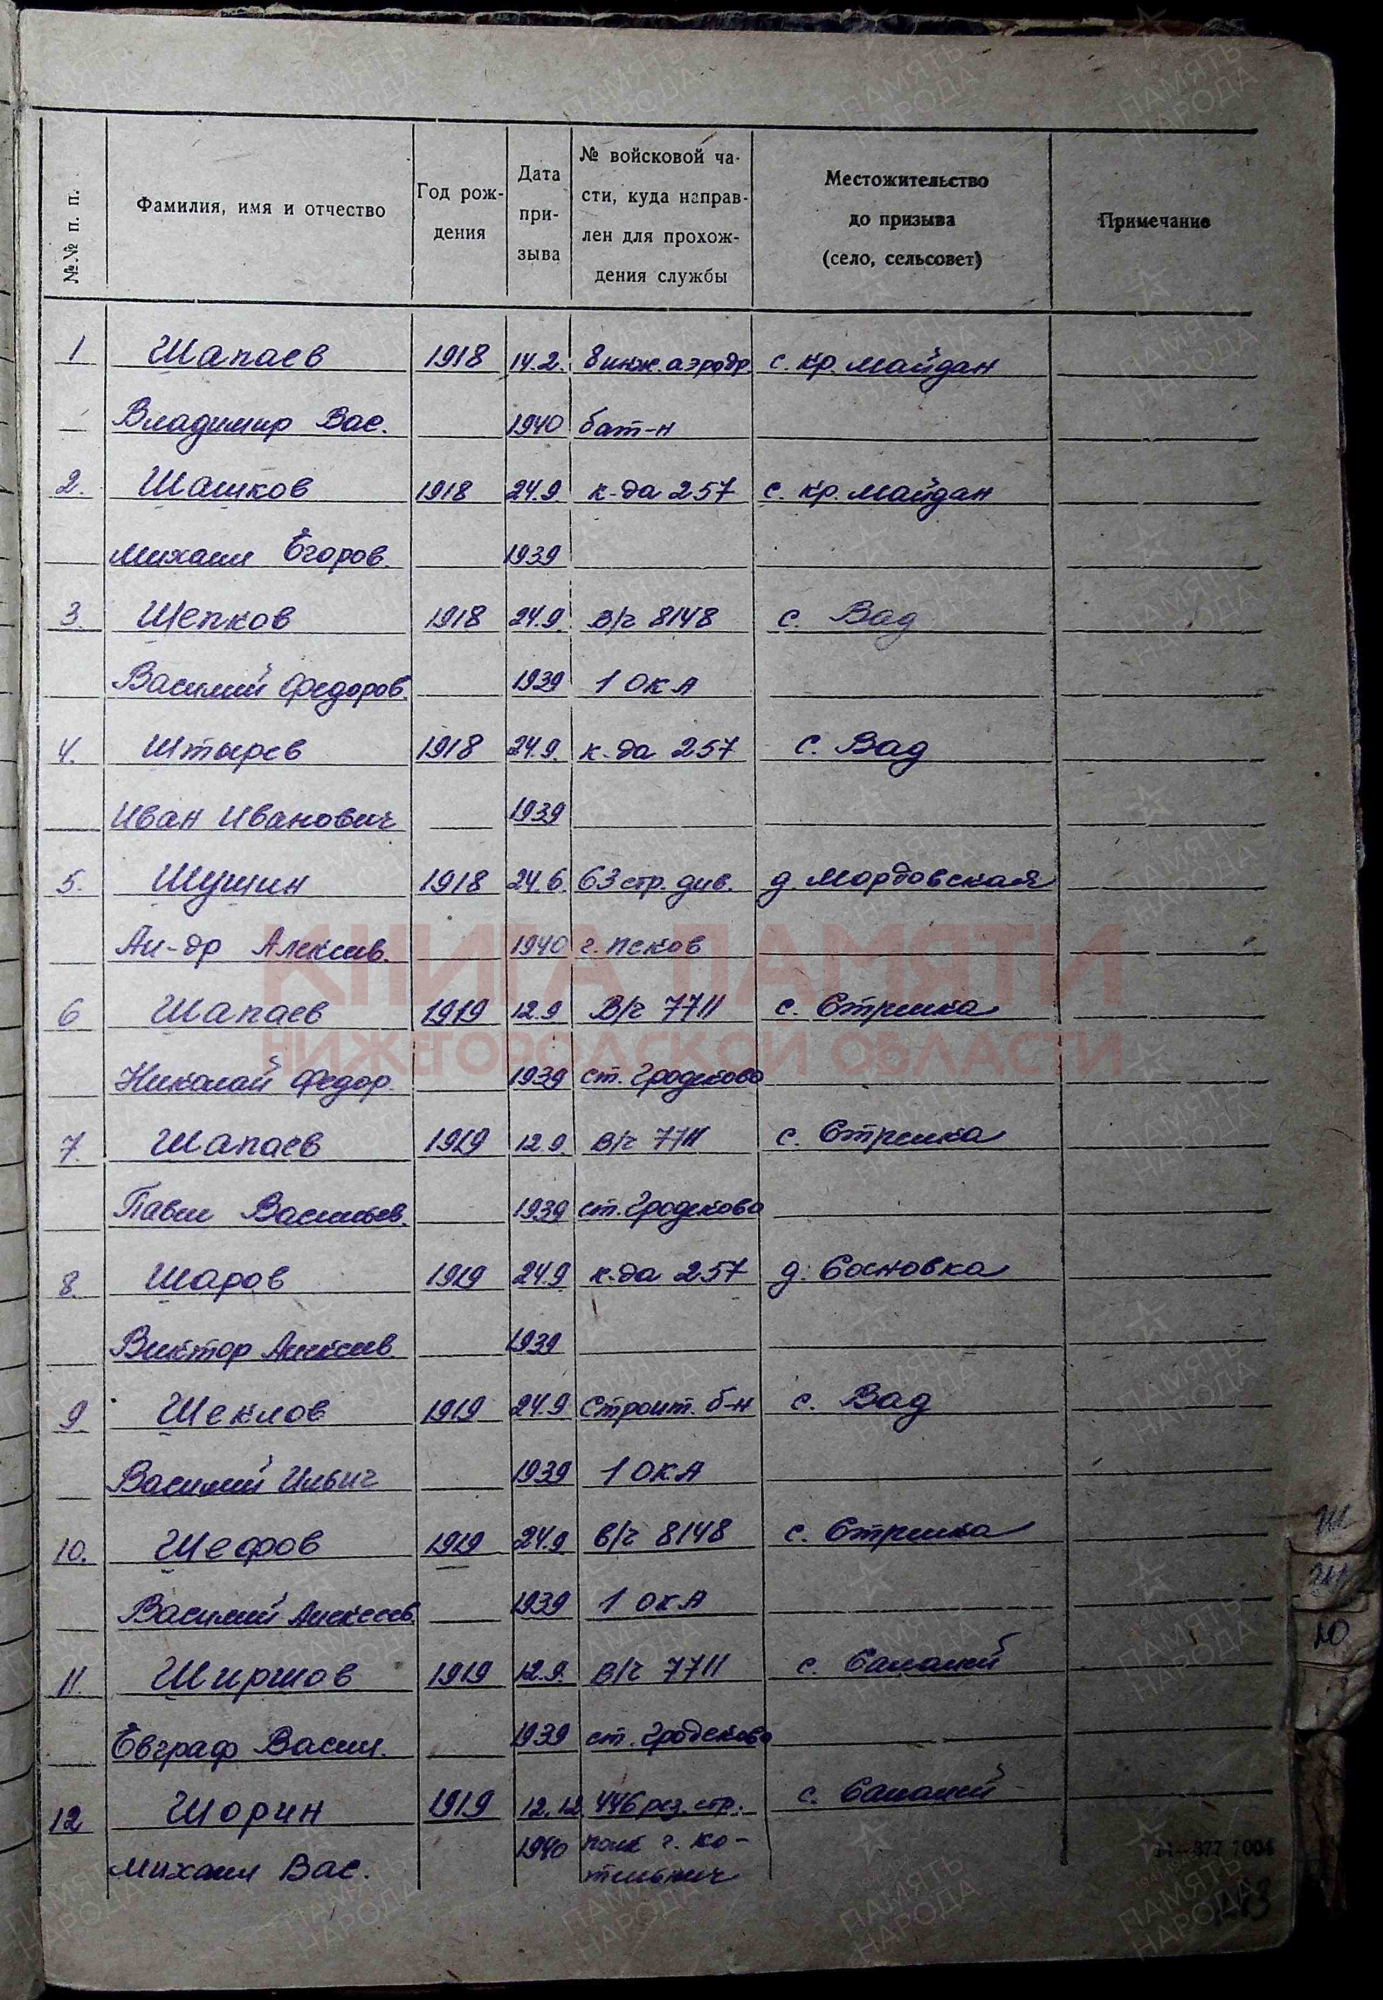 №№ п. п. Фамилия, имя и отчество Год рождения Дата призыва № войсковой части, куда направлен для прохождения службы Местожительство до призыва (село, сельсовет) Примечание
1 Шапаев 1918 14.2. 8 инж. аэродр с. Кр. Майдан
Владимир Вас. 1940 бат-н
2. Шашков 1918 24.9 к-да 257 с. Кр. Майдан
Михаил Егоров. 1939
3. Щепков 1918 24.9. в/ч 8148 с. Вад
Василий Федоров. 1939 1 ОКА
4. Штырев 1918 24.9. к-да 257 с. Вад
Иван Иванович 1939
5. Шушин 1918 24.6. 63 стр. див. д. Мордовская
Ал-др Алексав. 1940 г. Псков
6 Шапаев 1919 12.9 В/ч 7711 с. Стрелка
Николай Федор. 1939 ст. Гродеково
7. Шапаев 1919 12.9. в/ч 7711 с. Стрелка
Павел Васильев. 1939 ст. Гродеково
8. Шаров 1919 24.9 к-да 257 д. Сосновка
Виктор Алексав. 1939
9 Шеклов 1919 24.9 Строит. б-н с. Вад
Василий Ильич 1939 1 ОКА
10. Шефов 1919 24.9 в/ч 8148 с. Стрелка
Василий Алексеев. 1939 1 ОКА
11 Ширшов 1919 12.9. в/ч 7711 с. Салалей
Евграф Васил. 1939 ст. Гродеково
12 Шорин 1919 12.12 446 рез. стр. с. Салалей
Михаил Вас. 1940 полк г. Ко-
тельнич
КНИГА ПАМЯТИ
НИЖЕГОРОДСКОЙ ОБЛАСТИ
ПАМЯТЬ НАРОДА
Ю